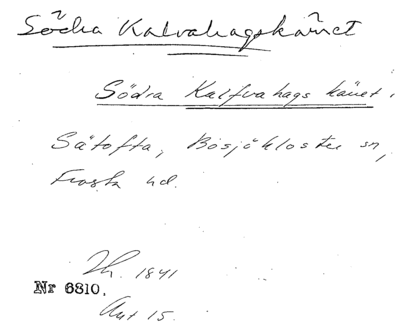 Södra Kalvahagskärret
Södra Kalfvahags käret.
Sätofta, Bosjökloster sn,
Frosta hd.
1841
Nr 6810.
Akt 15.